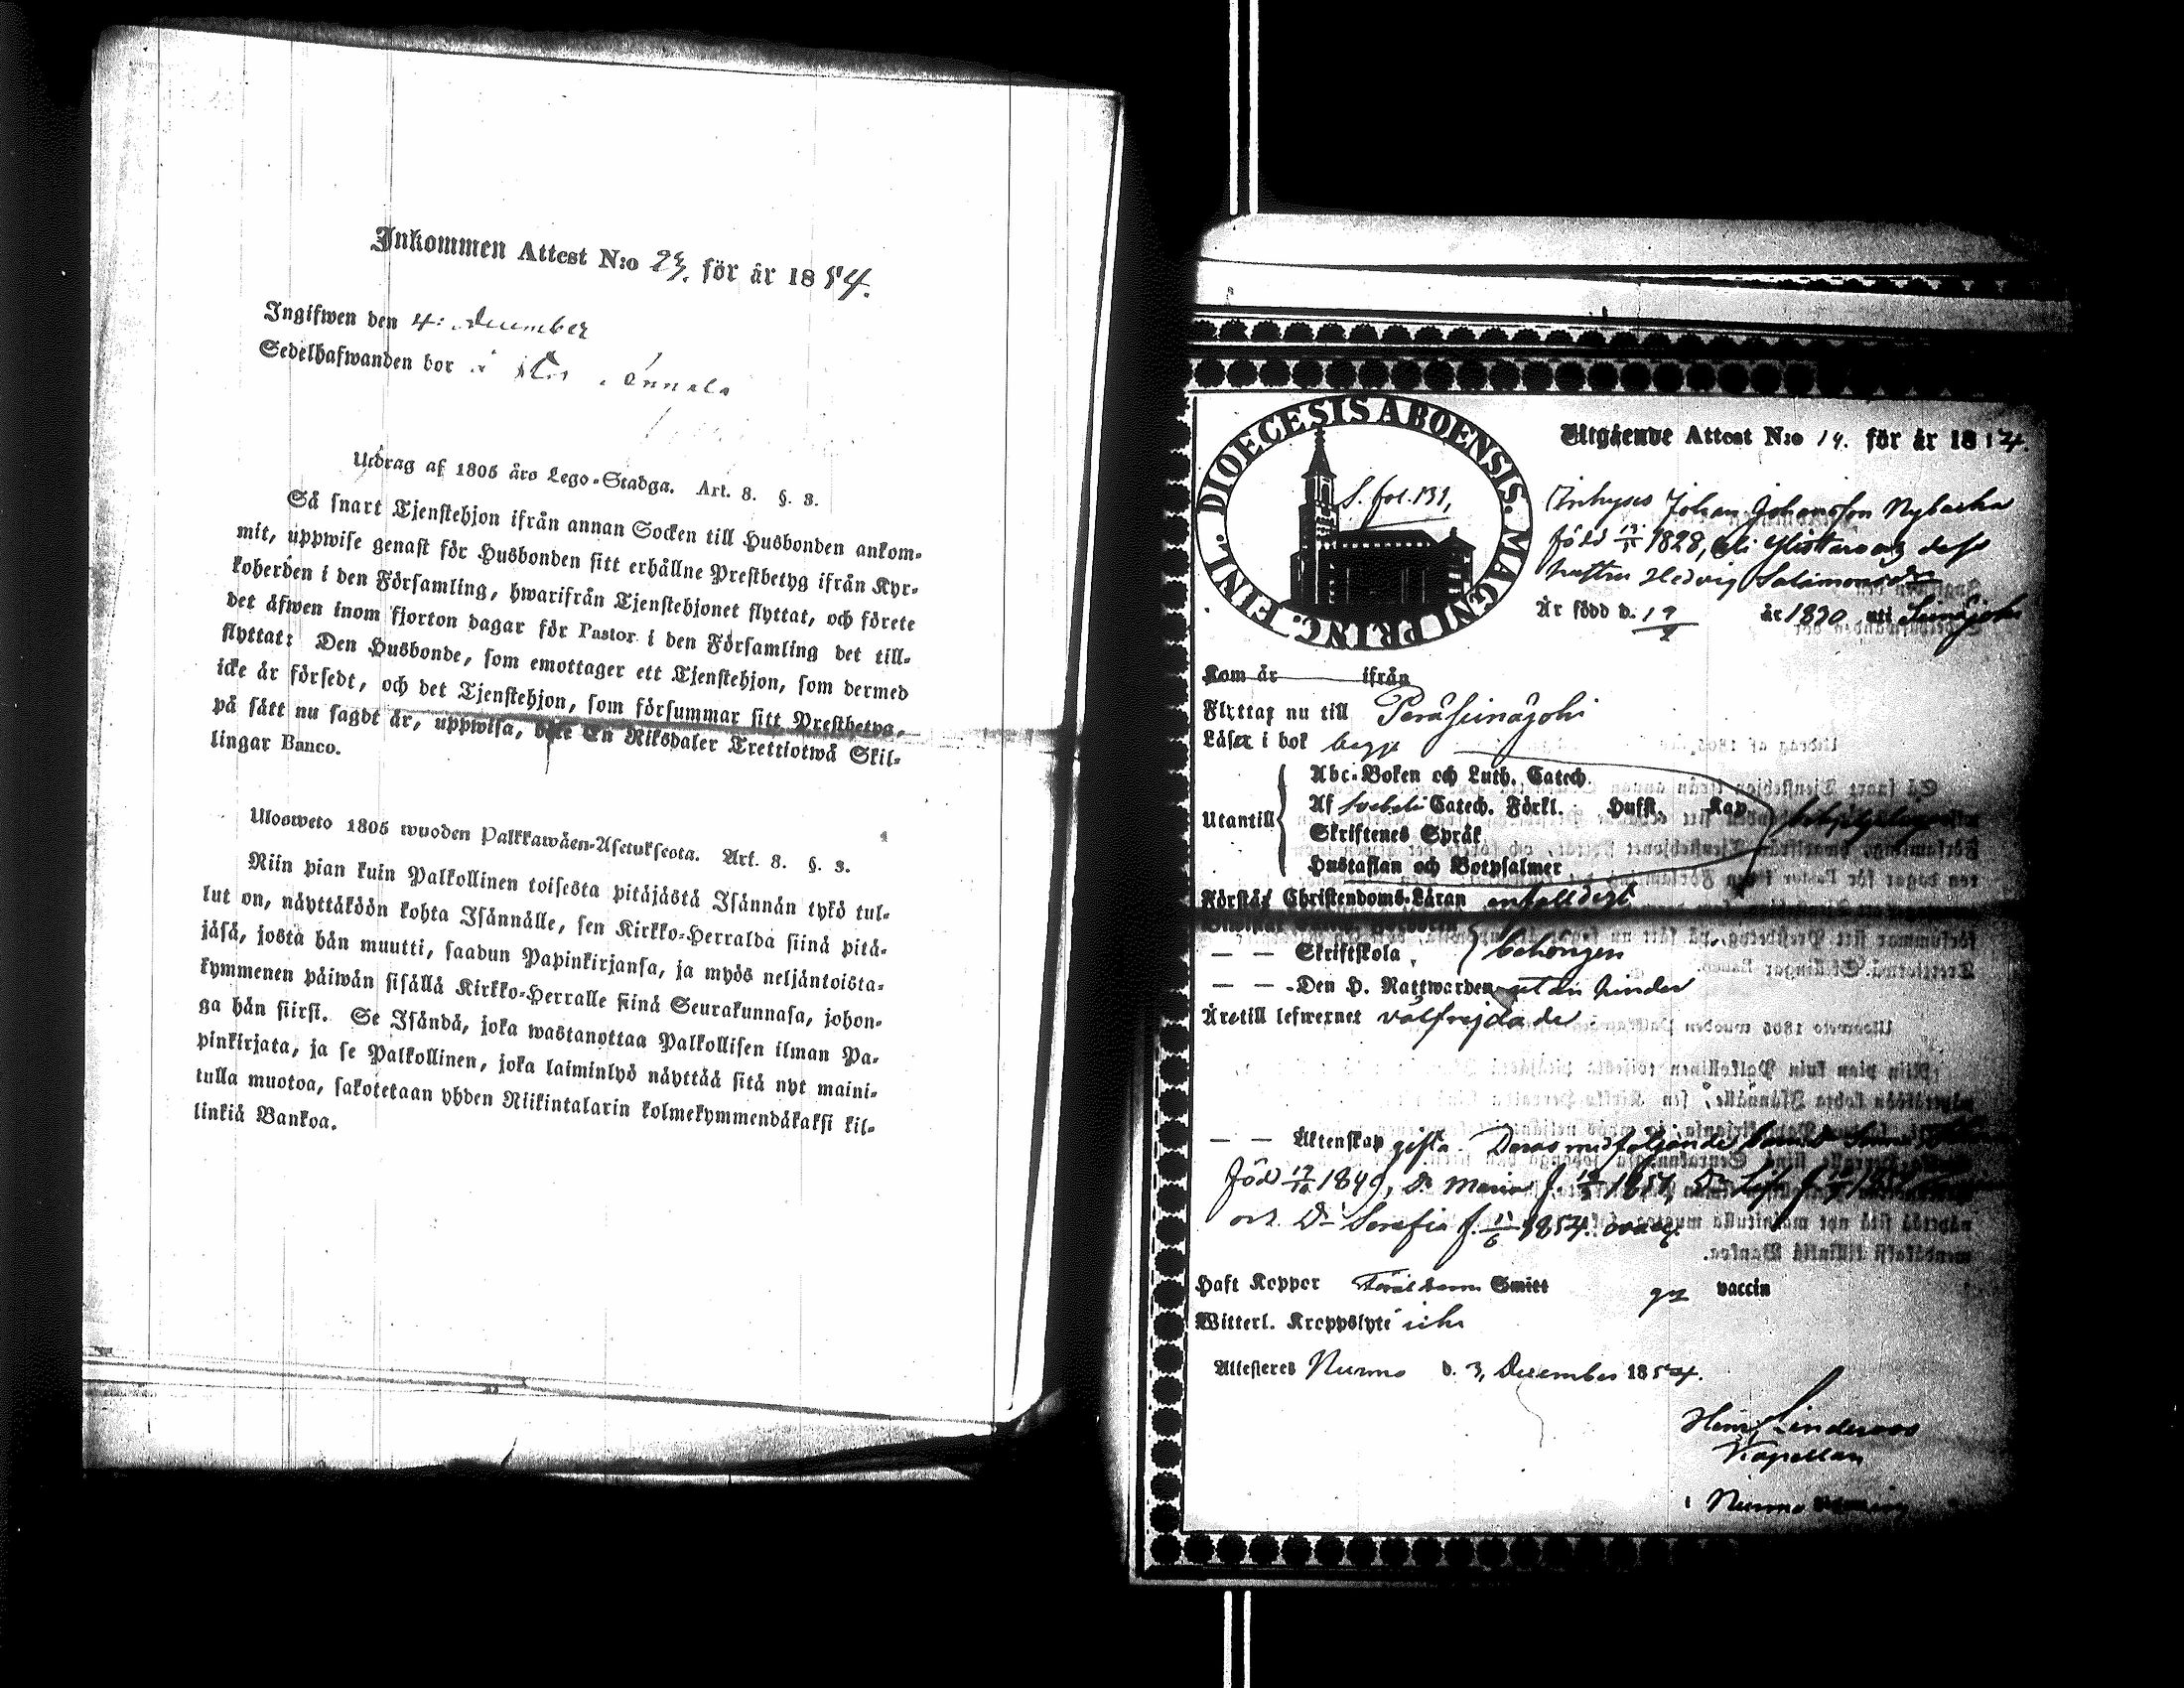 Inkommen Attest N:o 23. för år 1854.
Ingifwen den 4: December
Sedelhafwanden bor i
Utdrag af 1805 års Lego-Stadga. Art. 8. §. 3.
Så snart Tjenstehjon ifrån annan Socken till Husbonden ankom-
mit, uppwise genast för Husbonden sitt erhållne Prestbetyg ifrån Kyr-
koherden i den Församling, hwarifrån Tjenstehjonet flyttat, och förete
det äfwen inom fjorton dagar för Pastor i den Församling det till-
flyttat: Den Husbonde, som emottager ett Tjenstehjon, som dermed
icke är försedt, och det Tjenstehjon, som försummar sitt Prestbetyg,
på sätt nu sagdt är, uppwisa, böte En Riksdaler Trettiotwå Skil-
lingar Banco.
Ulosweto 1805 wuoden Palkkawäen-Asetuksesta. Art. 8. §. 3.
Niin pian kuin Palkollinen toisesta pitäjästä Isännän tykö tul-
lut on, näyttäköön kohta Isännälle, sen Kirkko-Herralda siinä pitä-
jäsä, josta hän muutti, saadun Papinkirjansa, ja myös neljäntoista-
kymmenen päiwän sisällä Kirkko-Herralle siinä Seurakunnasa, johon-
ga hän siirsi. Se Isändä, joka wastanottaa Palkollisen ilman Pa-
pinkirjata, ja se Palkollinen, joka laiminlyö näyttää sitä nyt maini-
tulla muotoa, sakotetaan yhden Riikintalarin kolmekymmendäkaksi kil-
linkiä Bankoa.
DIOECESIS ABOENSIS. MAGNI PRINC. FINL.
S. fol. 131,
Utgående Attest N:o 14. för år 1854.
Inhyses Johan Johansson Nybacka
född 1828, och dess
hustru Hedvig Salomonsdr
Är född d. 19 år 1830 uti Seinäjoki
Kom år ifrån
Flyttar nu till Peräseinäjoki
Läser i bok begge
Utantill
Abc-Boken och Luth. Catech.
Af Svebelii Catech. Förkl. Hufst. Kap.
Skriftenes Språk
Hustaflan och Botpsalmer
Förstår Christendoms-Läran enfalldigt
— — Skriftskola behörigen
— — Den H. Nattwarden utan hinder
Är till lefwernet välfrejdade
— — Äktenskap gifta. Deras medföljande barn
Född 1849, Dr Maria f. 1851,
och Dr Serafia f. 11/6 1854.
Haft Koppor Föräldarne Smitt vaccin
Witterl. Kroppslyte icke
Attesteres Nurmo d. 3, December 1854.
Henr. Linderoos
Kapellan
i Nurmo